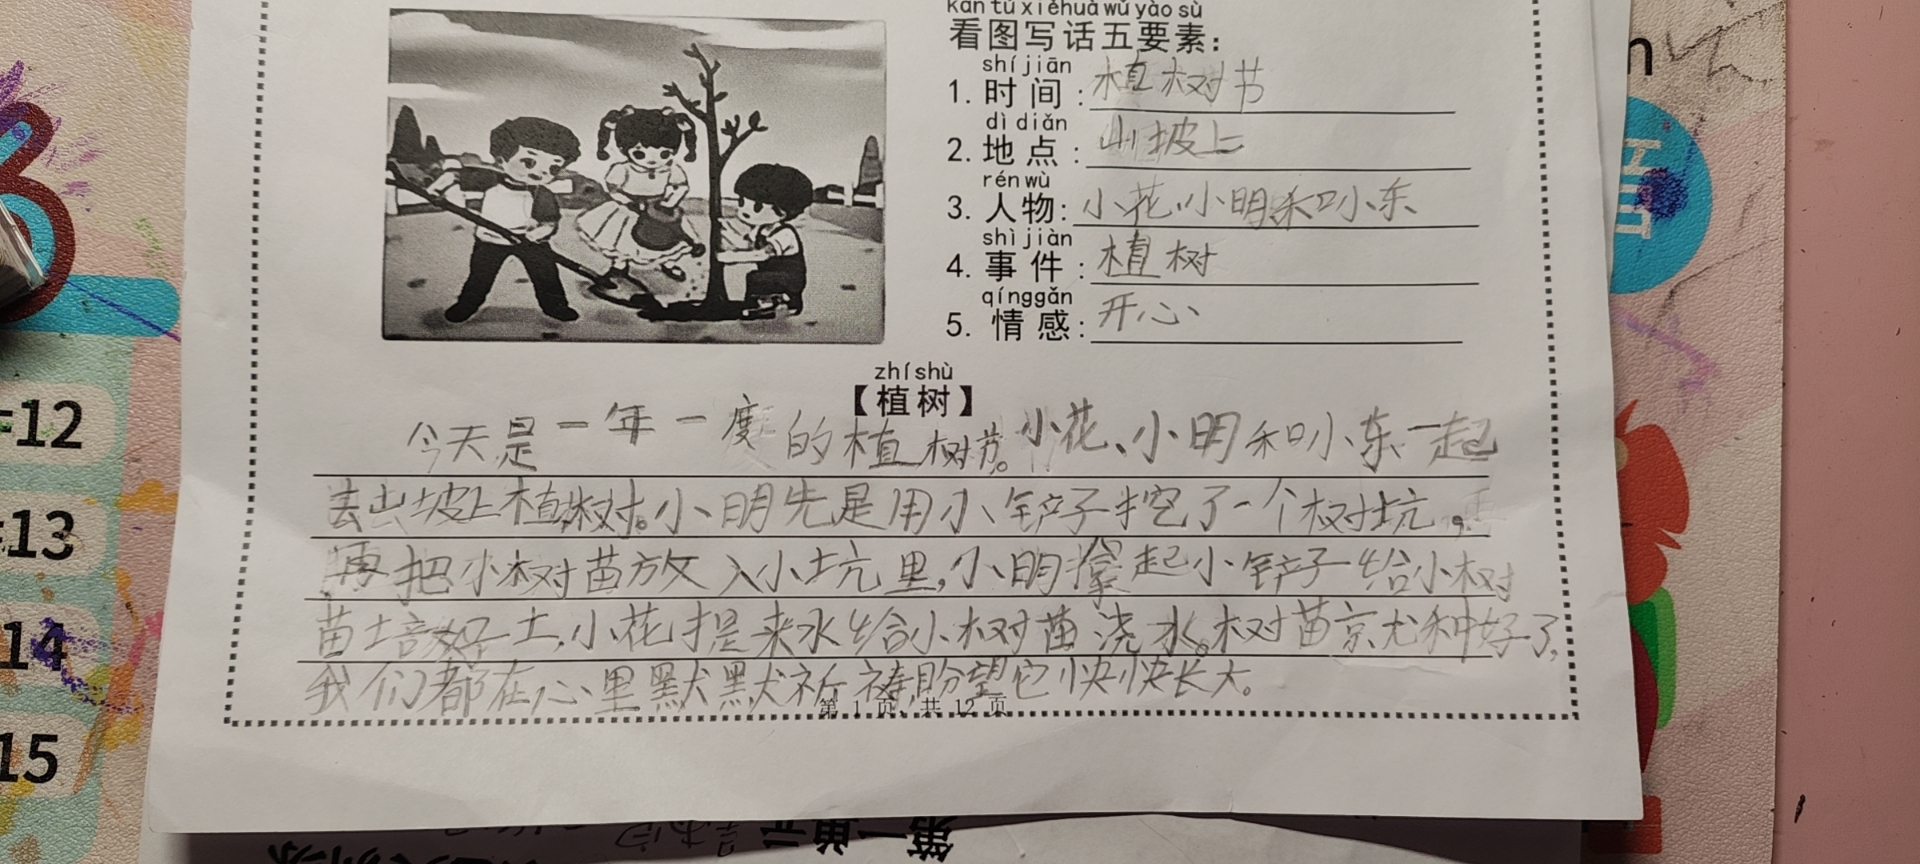 kàn tú xiě huà wǔ yào sù
看图写话五要素：
shí jiān
1. 时间：植树节
dì diǎn
2. 地点：山坡上
rén wù
3. 人物：小花、小明和小东
shì jiàn
4. 事件：植树
qíng gǎn
5. 情感：开心
zhí shù
【植树】
今天是一年一度的植树节。小花、小明和小东一起
去山坡上植树。小明先是用小铲子挖了一个树坑，
再把小树苗放入小坑里，小明拿起小铲子给小树
苗培好土，小花提来水给小树苗浇水。树苗京尤种好了，
我们都在心里默默祈祷盼望它快快长大。
第 1 页，共 12 页
=12
=13
14
15
第一单元